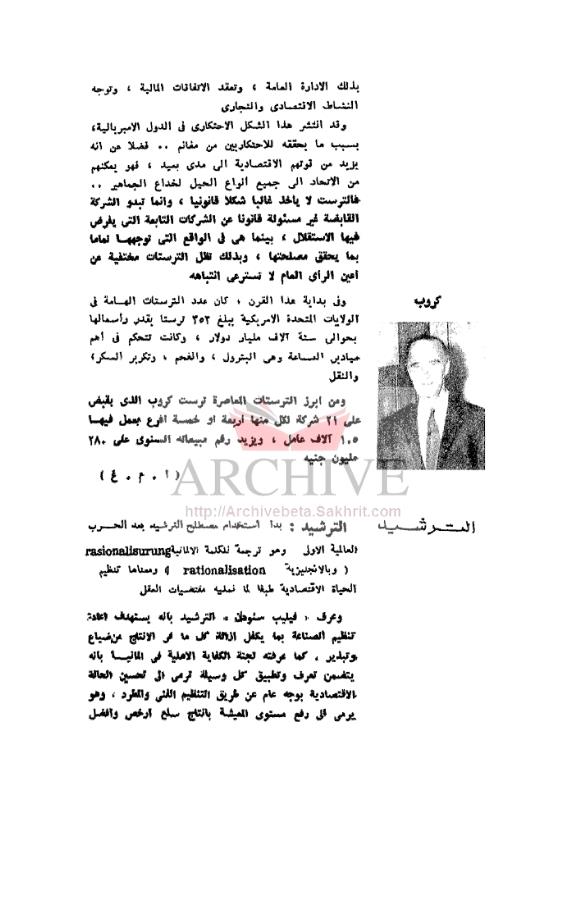 بذلك الادارة العامة ، وتعقد الاتفاقات المالية ، وتوجه
النشاط الاقتصادى والتجارى
وقد انتشر هذا الشكل الاحتكارى فى الدول الامبريالية،
بسبب ما يحققه للاحتكاريين من مغانم .. فضلا عن انه
يزيد من قوتهم الاقتصادية الى مدى بعيد ، فهو يمكنهم
من الاتحاد الى جميع أنواع الحيل لخداع الجماهير ..
فالترست لا يأخذ غالبا شكلا قانونيا ، وانما تبدو الشركة
القابضة غير مسئولة قانونا عن الشركات التابعة التى يفرض
فيها الاستقلال ، بينما هى فى الواقع التى توجهها تماما
بما يحقق مصلحتها ، وبذلك تظل الترستات مختفية عن
أعين الرأى العام لا تسترعى انتباهه
وفى بداية هذا القرن ، كان عدد الترستات الهامة فى
الولايات المتحدة الامريكية يبلغ ٣٥٢ ترستا يقدر رأسمالها
بحوالى ستة آلاف مليار دولار ، وكانت تتحكم فى أهم
ميادين الصناعة وهى البترول ، والفحم ، وتكرير السكر،
والنقل
كروب
ومن ابرز الترستات المعاصرة ترست كروب الذى يقبض
على ٢١ شركة لكل منها أربعة او خمسة افرع يعمل فيها
١٠٥ آلاف عامل ، ويزيد رقم مبيعاته السنوى على ٢٨٠
مليون جنيه
( أ . م . غ )
ARCHIVE
http://Archivebeta.Sakhrit.com
الترشيد
الترشيد : بدأ استخدام مصطلح الترشيد بعد الحرب
العالمية الاولى وهو ترجمة للكلمة الالمانية rasionalisurung
( وبالانجليزية rationalisation ) ومعناها تنظيم
الحياة الاقتصادية طبقا لما تمليه مقتضيات العقل
وعرف « فيليب سنودن » الترشيد بانه يستهدف اعادة
تنظيم الصناعة بما يكفل ازالة كل ما فى الانتاج من ضياع
وتبذير ، كما عرفته لجنة الكفاية الاهلية فى المانيا بانه
يتضمن تعرف وتطبيق كل وسيلة ترمى الى تحسين الحالة
الاقتصادية بوجه عام عن طريق التنظيم الفنى والمطرد ، وهو
يرمى الى رفع مستوى المعيشة بانتاج سلع ارخص وافضل